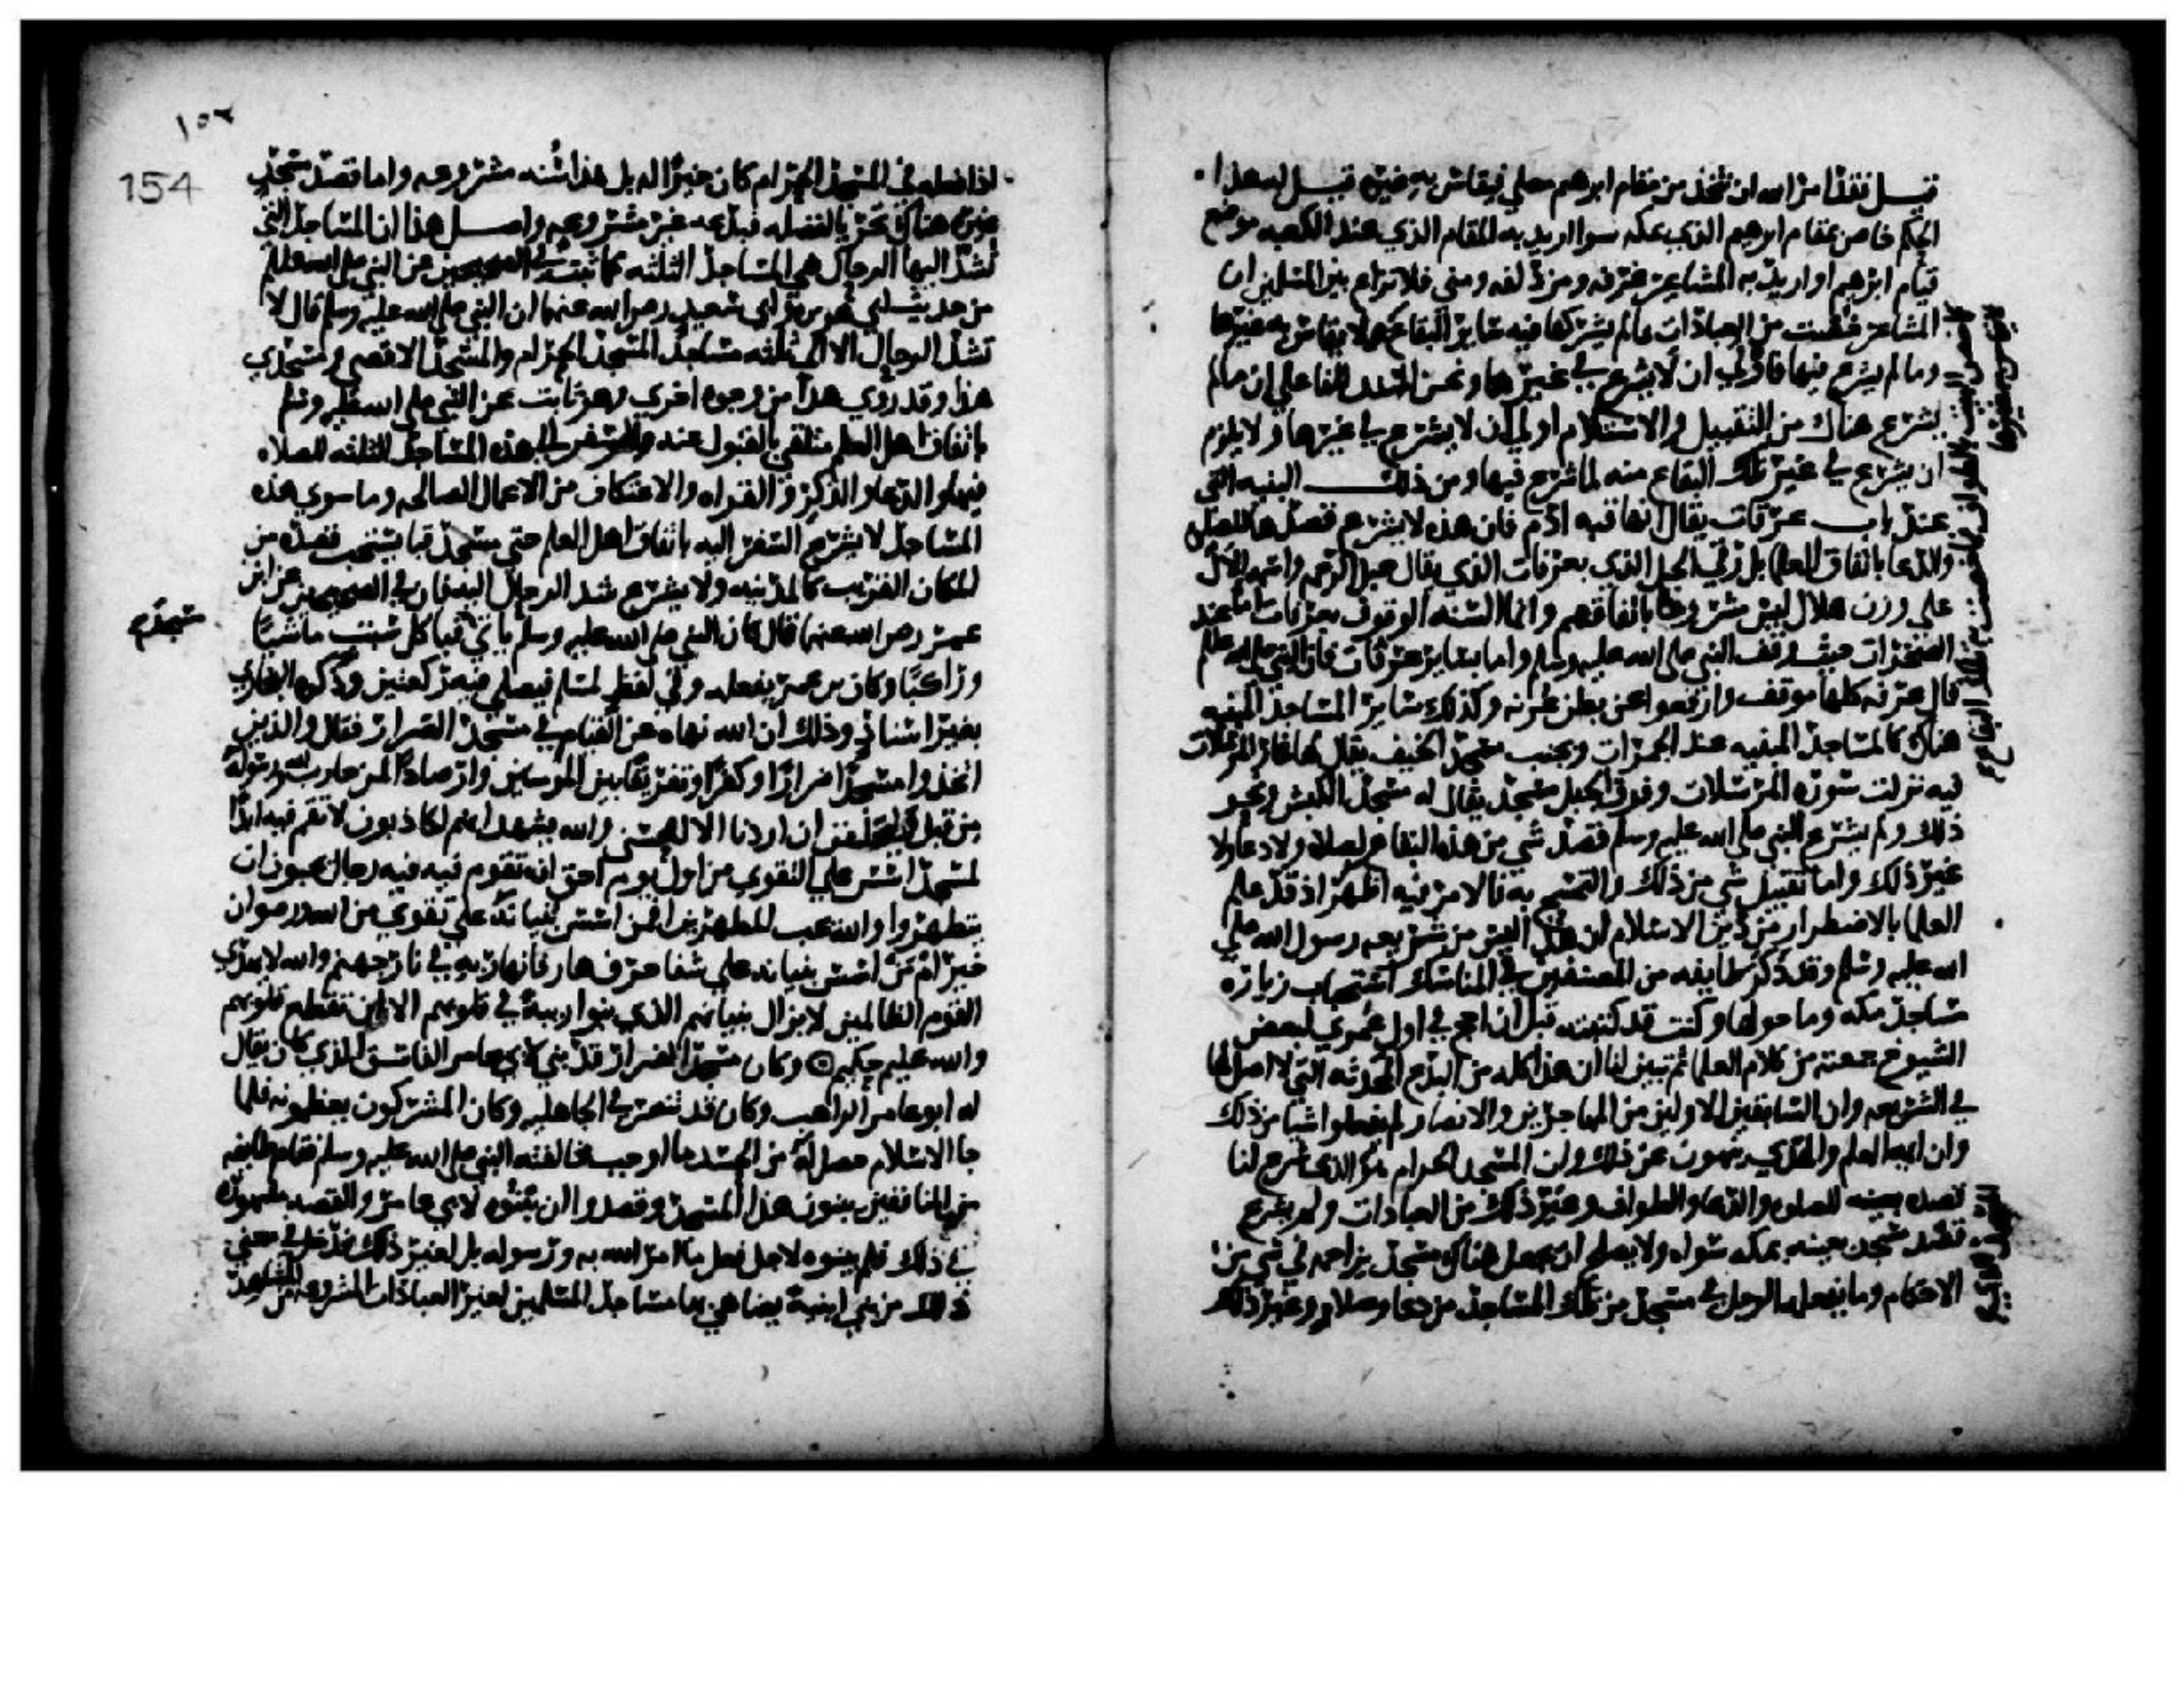 قيل فقد امر الله ان نتخذ من مقام ابرهيم مصلي فيقاس به غيره قيل له هذا
الحكم خاص بمقام ابرهيم الذي بمكه سوا اريد به المقام الذي عند الكعبه موضع
قيام ابرهيم او اريد به المشاعر عرفه ومزدلفه ومنى فلا نزاع بين المسلمين ان
المشاعر خصت من العبادات بما لم يشركها فيه سائر البقاع
وما لم يشرع فيها فاولي ان لا يشرع في غيرها ونحن استدللنا علي ان ما لم
يشرع هناك من التقبيل والاستلام اولي ان لا يشرع في غيرها ولا يلزم
ان يشرع في غير تلك البقاع مثل ما شرع فيها ومن ذلك البنيه التي
عند باب عرفات يقال انها قبه ادم فان هذه لا يشرع قصدها للصلاه
والدعا باتفاق العلما بل رقي الجبل الذي بعرفات الذي يقال جبل الرحمه واسمه الال
علي وزن هلال ليس مشروعا باتفاقهم وانما السنه الوقوف بعرفات اما عند
الصخرات حيث وقف النبي صلى الله عليه وسلم واما بسائر عرفات فان النبي صلى الله عليه وسلم
قال عرفه كلها موقف وارفعوا عن بطن عرنه وكذلك سائر المساجد المبنيه
هناك كالمساجد المبنيه عند الجمرات وبجنب مسجد الخيف يقال لها غار المرسلات
فيه نزلت سوره المرسلات وفوق الجبل مسجد يقال له مسجد الكبش ونحو
ذلك ولم يشرع النبي صلى الله عليه وسلم قصد شي من هذه البقاع لصلاه ولا دعا ولا
غير ذلك واما تقبيل شي من ذلك والتمسح به فالامر فيه اظهر اذ قد علم
العلما بالاضطرار من دين الاسلام ان هذا ليس من شريعه رسول الله صلي
الله عليه وسلم وقد ذكر طايفه من المصنفين في المناسك استحباب زياره
مساجد مكه وما حولها وكنت قد كتبتها قبل ان احج في اول عمري لبعض
الشيوخ جمعته من كلام العلما ثم تبين لنا ان هذا كله من البدع المحدثه التي لا اصل لها
في الشريعه وان السابقين الاولين من المهاجرين والانصار لم يفعلوا شيا من ذلك
وان ايمه العلم والهدي ينهون عن ذلك وان المسجد الحرام هو الذي شرع لنا
قصده للصلاه والدعا والطواف وغير ذلك من العبادات ولم يشرع
قصد مسجد بعينه بمكه سواه ولا يصلح ان يجعل هناك مسجد يزاحمه في شي من
الاحكام وما يفعله الرجل في مسجد من تلك المساجد من دعا وصلاه وغير ذلك
154
اذا فعله في المسجد الحرام كان خيرا له بل هذا سنه مشروعه واما قصد مسجد
غيره هناك تحريا لفضله فبدعه غير مشروعه واصل هذا ان المساجد التي
تشد اليها الرحال هي المساجد الثلثه كما ثبت في الصحيحين عن النبي صلى الله عليه وسلم
من حديث ابي هريره وابي سعيد رضي الله عنهما ان النبي صلى الله عليه وسلم قال لا
تشد الرحال الا الى ثلثه مساجد المسجد الحرام والمسجد الاقصي ومسجدي
هذا وقد روي هذا من وجوه اخري وهو ثابت عن النبي صلى الله عليه وسلم
باتفاق اهل العلم متلقي بالقبول عنه والسفر الي هذه المساجد الثلثه للصلاه
فيها والدعا والذكر والقراه والاعتكاف من الاعمال الصالحه وما سوي هذه
المساجد لا يشرع السفر اليه باتفاق اهل العلم حتى مسجد قبا يستحب قصده من
المكان القريب كالمدينه ولا يشرع شد الرحال اليه فان في الصحيحين عن ابن
عمر رضي الله عنهما قال كان النبي صلى الله عليه وسلم ياتي قبا كل سبت ماشيا
وراكبا وكان ابن عمر يفعله وفي لفظ لمسلم فيصلي فيه ركعتين وذكره البخاري
بغير اسناد وذلك ان الله نهاه عن القيام في مسجد الضرار فقال والذين
اتخذوا مسجدا ضرارا وكفرا وتفريقا بين المومنين وارصادا لمن حارب الله ورسوله
من قبل وليحلفن ان اردنا الا الحسنى والله يشهد انهم لكاذبون لا تقم فيه ابدا
لمسجد اسس علي التقوي من اول يوم احق ان تقوم فيه فيه رجال يحبون ان
يتطهروا والله يحب المطهرين افمن اسس بنيانه علي تقوي من الله ورضوان
خير ام من اسس بنيانه علي شفا جرف هار فانهار به في نار جهنم والله لا يهدي
القوم الظالمين لا يزال بنيانهم الذي بنوا ريبة في قلوبهم الا ان تقطع قلوبهم
والله عليم حكيم وكان مسجد الضرار قد بني لابي عامر الفاسق الذي كان يقال
له ابو عامر الراهب وكان قد تنصر في الجاهليه وكان المشركون يعظمونه فلما
جا الاسلام حصل له من الحسد ما اوجب مخالفته النبي صلى الله عليه وسلم فقام طايفه
من المنافقين يبنون هذا المسجد وقصدوا ان يبنوه لابي عامر والقصه مشهوره
في ذلك فلم يبنوه لاجل فعل ما امر الله به ورسوله بل لغير ذلك فدخل في معني
ذلك من بني ابنية يضاهي بها مساجد المسلمين لغير العبادات المشروعه من